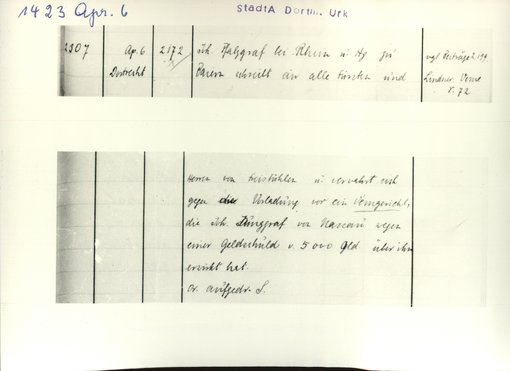 1423 Apr. 6
StadtA Dortm. Urk
2307 Apr. 6 2172 Joh. Pfalzgraf bei Rhein u. Hg zu vgl. Beiträge 2, 194
Dortrecht Baiern schreibt an alle Fürsten und Lindner, Veme
S. 72
Herren von Freistühlen u. verwahrt sich
gegen die Vorladung vor ein Vemgericht,
die Joh. Junggraf von Nassau wegen
einer Geldschuld v. 5000 Gld über ihn
erwirkt hat.
Or. aufgedr. S.